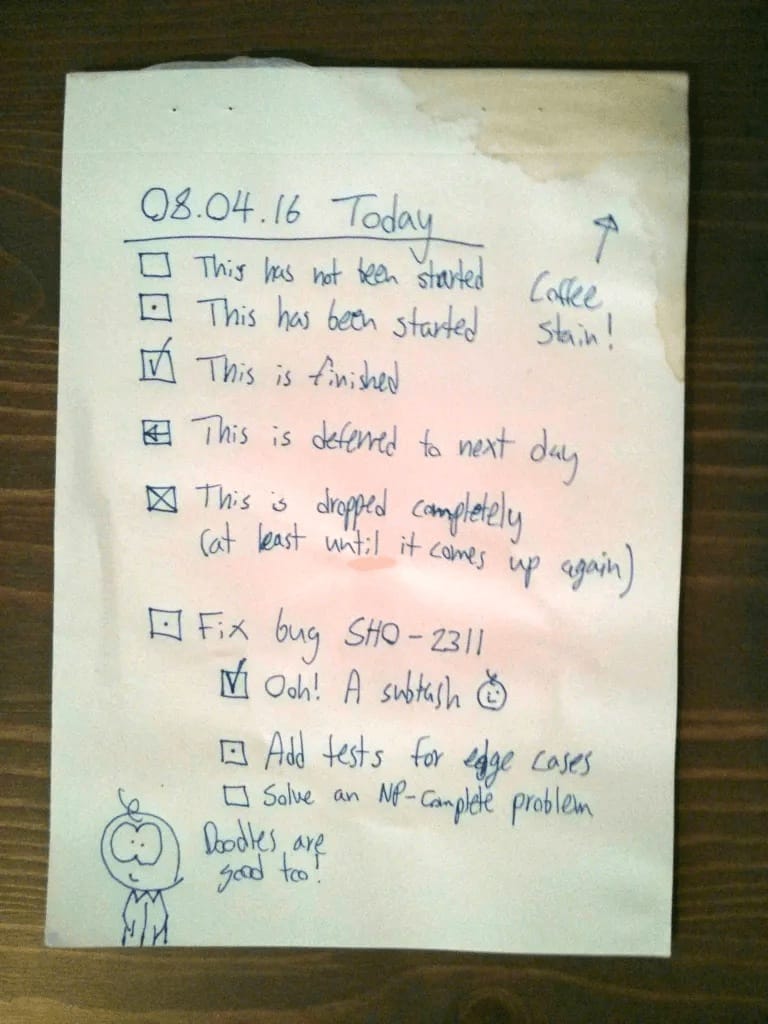 08.04.16 Today
This has not been started
This has been started
Coffee
Stain!
This is finished
This is deferred to next day
This is dropped completely
(at least until it comes up again)
Fix bug SHO-2311
Ooh! A subtask
Add tests for edge cases
Solve an NP-Complete problem
Doodles are
good too!